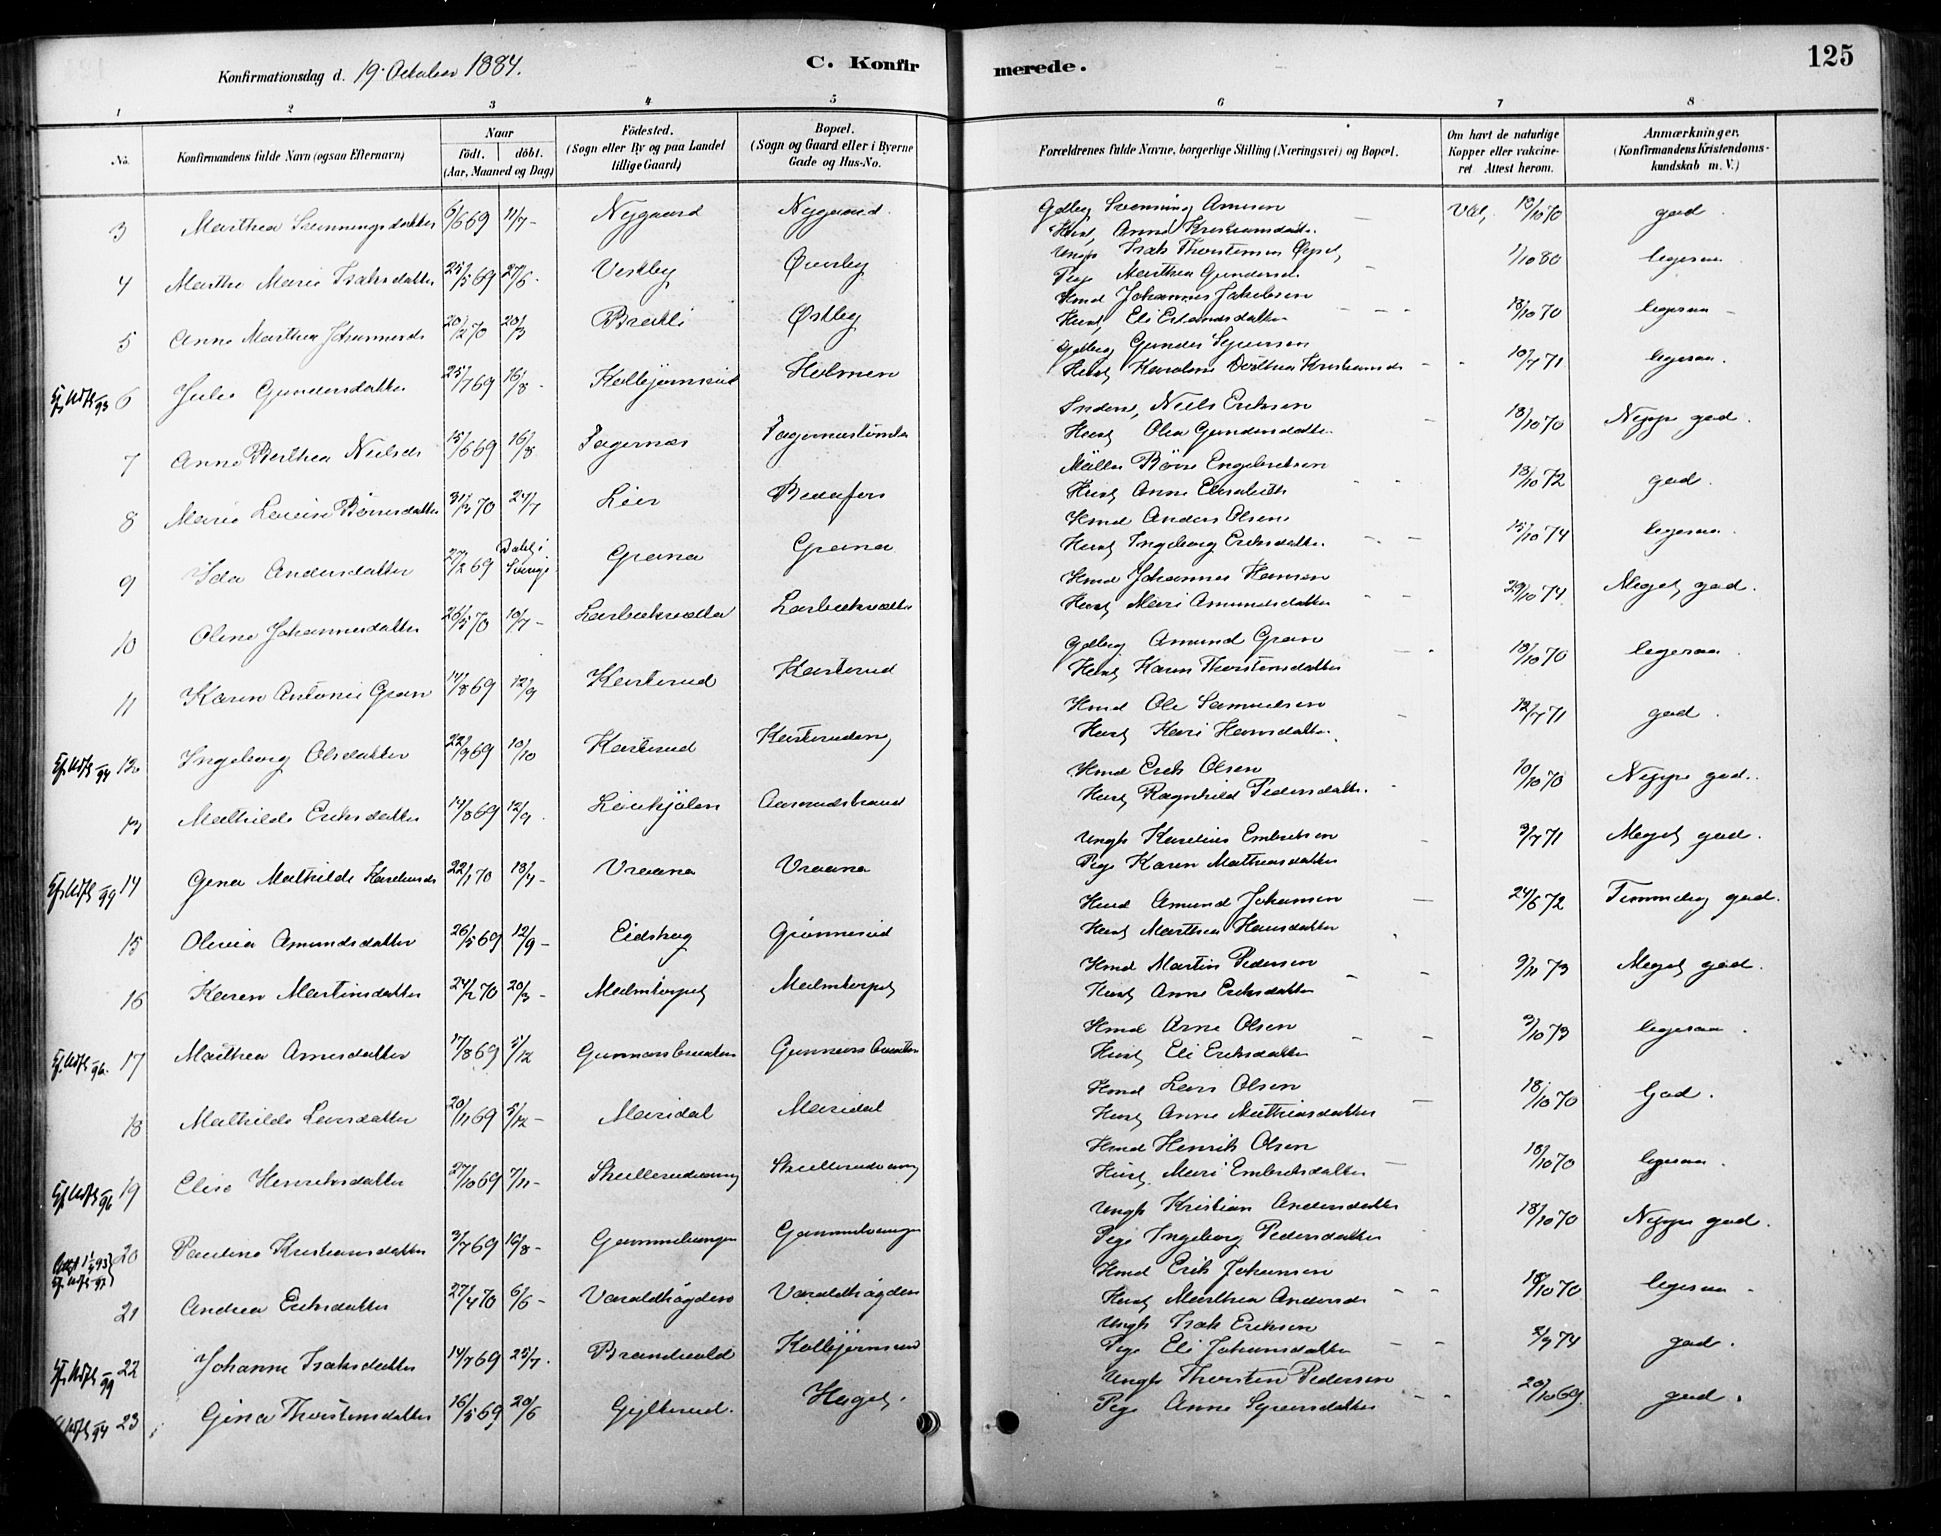 Konfirmationsdag d. 19. October 1884. C. Konfirmerede. 125
1 2 3 4 5 6 7 8
No. Konfirmandens fulde Navn (ogsaa Efternavn) Naar födt. döbt. (Aar, Maaned og Dag) Födested. (Sogn eller By og paa Landet tillige Gaard) Bopæl. (Sogn og Gaard eller i Byerne Gade og Hus-No.) Forældrenes fulde Navne, borgerlige Stilling (Næringsvei) og Bopæl. Om havt de naturlige Kopper eller vakcineret Attest herom. Anmærkninger. (Konfirmandens Kristendomskundskab m. V.)
3 Marthea Svenningsdatter 6/6 69 11/7 - Nygaard Nygaard. Gdbrg Svenning Arnesen Hust. Anne Kristiansdatter Vac. 18/10 70 god.
4 Marthe Marie Isaksdatter 25/5 69 27/6 - Vestby Øverby Ungk Isak Thorstensen Pige Marthea Gundersd. 1/10 80 ligesaa
5 Anne Marthea Johannesd. 20/2 70 20/3 Brækli Østby Hmd Johannes Jakobsen Hust. Eli Erlandsdatter 18/10 70 ligesaa
6 Julie Gundersdatter 25/7 69 15/8 - Kolbjørnsrud Holmen Gdbrg Gunder Syversen Hust. Karoline Dorthea Kristiansd. 10/7 71 ligesaa.
7 Anne Berthea Nielsd. 15/6 69 16/8 Fagernæs Inderst, Niels Eriksen Hust Olea Gundersdatter 18/10 70 Neppe god.
8 Marie Lovise Børresdatter 31/3 70 24/7 Lier Møller Børre Engebretsen Hust Anne Elisabeth 18/10 72 god.
9 Ida Andersdatter 27/2 69 Døbt i Sverige Grana Grana Hmd Anders Olsen Hust Ingeborg Eriksdatter. 15/10 74 ligesaa.
10 Oline Johannesdatter 26/5 70 10/7 - Hmd Johannes Hansen Hust, Mari Amundsdatter 29/10 74 Meget god.
11 Karen Antonie Gran 14/8 69 12/9 Keisterud Keisterud Gdbrg Amund Gran Hust Karen Thorstensdatter 18/10 70 ligesaa.
12 Ingeborg Olsdatter 22/9 69 10/10 Keisterud Hmd Ole Samuelsen Hust Kari Hansdatter. 12/7 71 god.
13 Mathilde Eriksdatter 14/8 69 12/9 Hmd Erik Olsen Hust Ragnhild Pedersdatter. 10/10 70 Neppe god.
14 Gina Mathilde 22/1 70 18/4 - Vraana Vraana Ungk Karelius Embretsen Pige Karen Mathiasdatter 3/7 71 Meget god.
15 Olivia Amundsdatter 26/5 69 12/9 - Eidskog Grønnerud Hmd Amund Johansen Hust Marthea Hansdatter 24/6 72 Temmelig god.
16 Karen Martinsdatter 24/2 70 20/3 - Malmtorpet Malmtorpet Hmd Martin Pedersen Hust Anne Eriksdatter 9/11 73 Meget god.
17 Marthea Arnesdatter 17/8 69 5/12 Gunnarsbraaten Gunnarsbraaten Hmd Arne Olsen Hust Eli Eriksdatter 3/10 73 ligesaa.
18 Mathilde Larsdatter 20/11 69 5/12 - Maridal Maridal Hmd Lars Olsen Hust Anne Mathiasdatter 18/10 70 God.
19 Elise Henriksdatter 27/10 69 7/11 - Skullerudvang Skullerudvang Hmd Henrik Olsen Hust. Mari Embretsdatter 18/10 70 ligesaa.
20 Pauline Kristiansdatter 3/7 69 16/8 - Gammelvangen Gammelvangen Ungk Kristian Andersdatter Pige Ingeborg Pedersdatter 18/10 70 Neppe god.
21 Andrea Eriksdatter 27/4 70 6/6 - Varaldhøgden Varaldhøgden Hmd Erik Johansen Hust Marthea Andersd. 18/10 70 ligesaa
22 Johanne Isaksdatter 14/7 69 25/7. Brandvold Kolbjørnsrud Ungk Isak Eriksen Pige Eli Johansdatter 2/7 74 god.
23 Gina Thorstensdatter 16/5 69 20/6 Gylterud. Haget. Ungk Thorsten Pedersen Pige Anne Syversdatter 20/10 69. god.